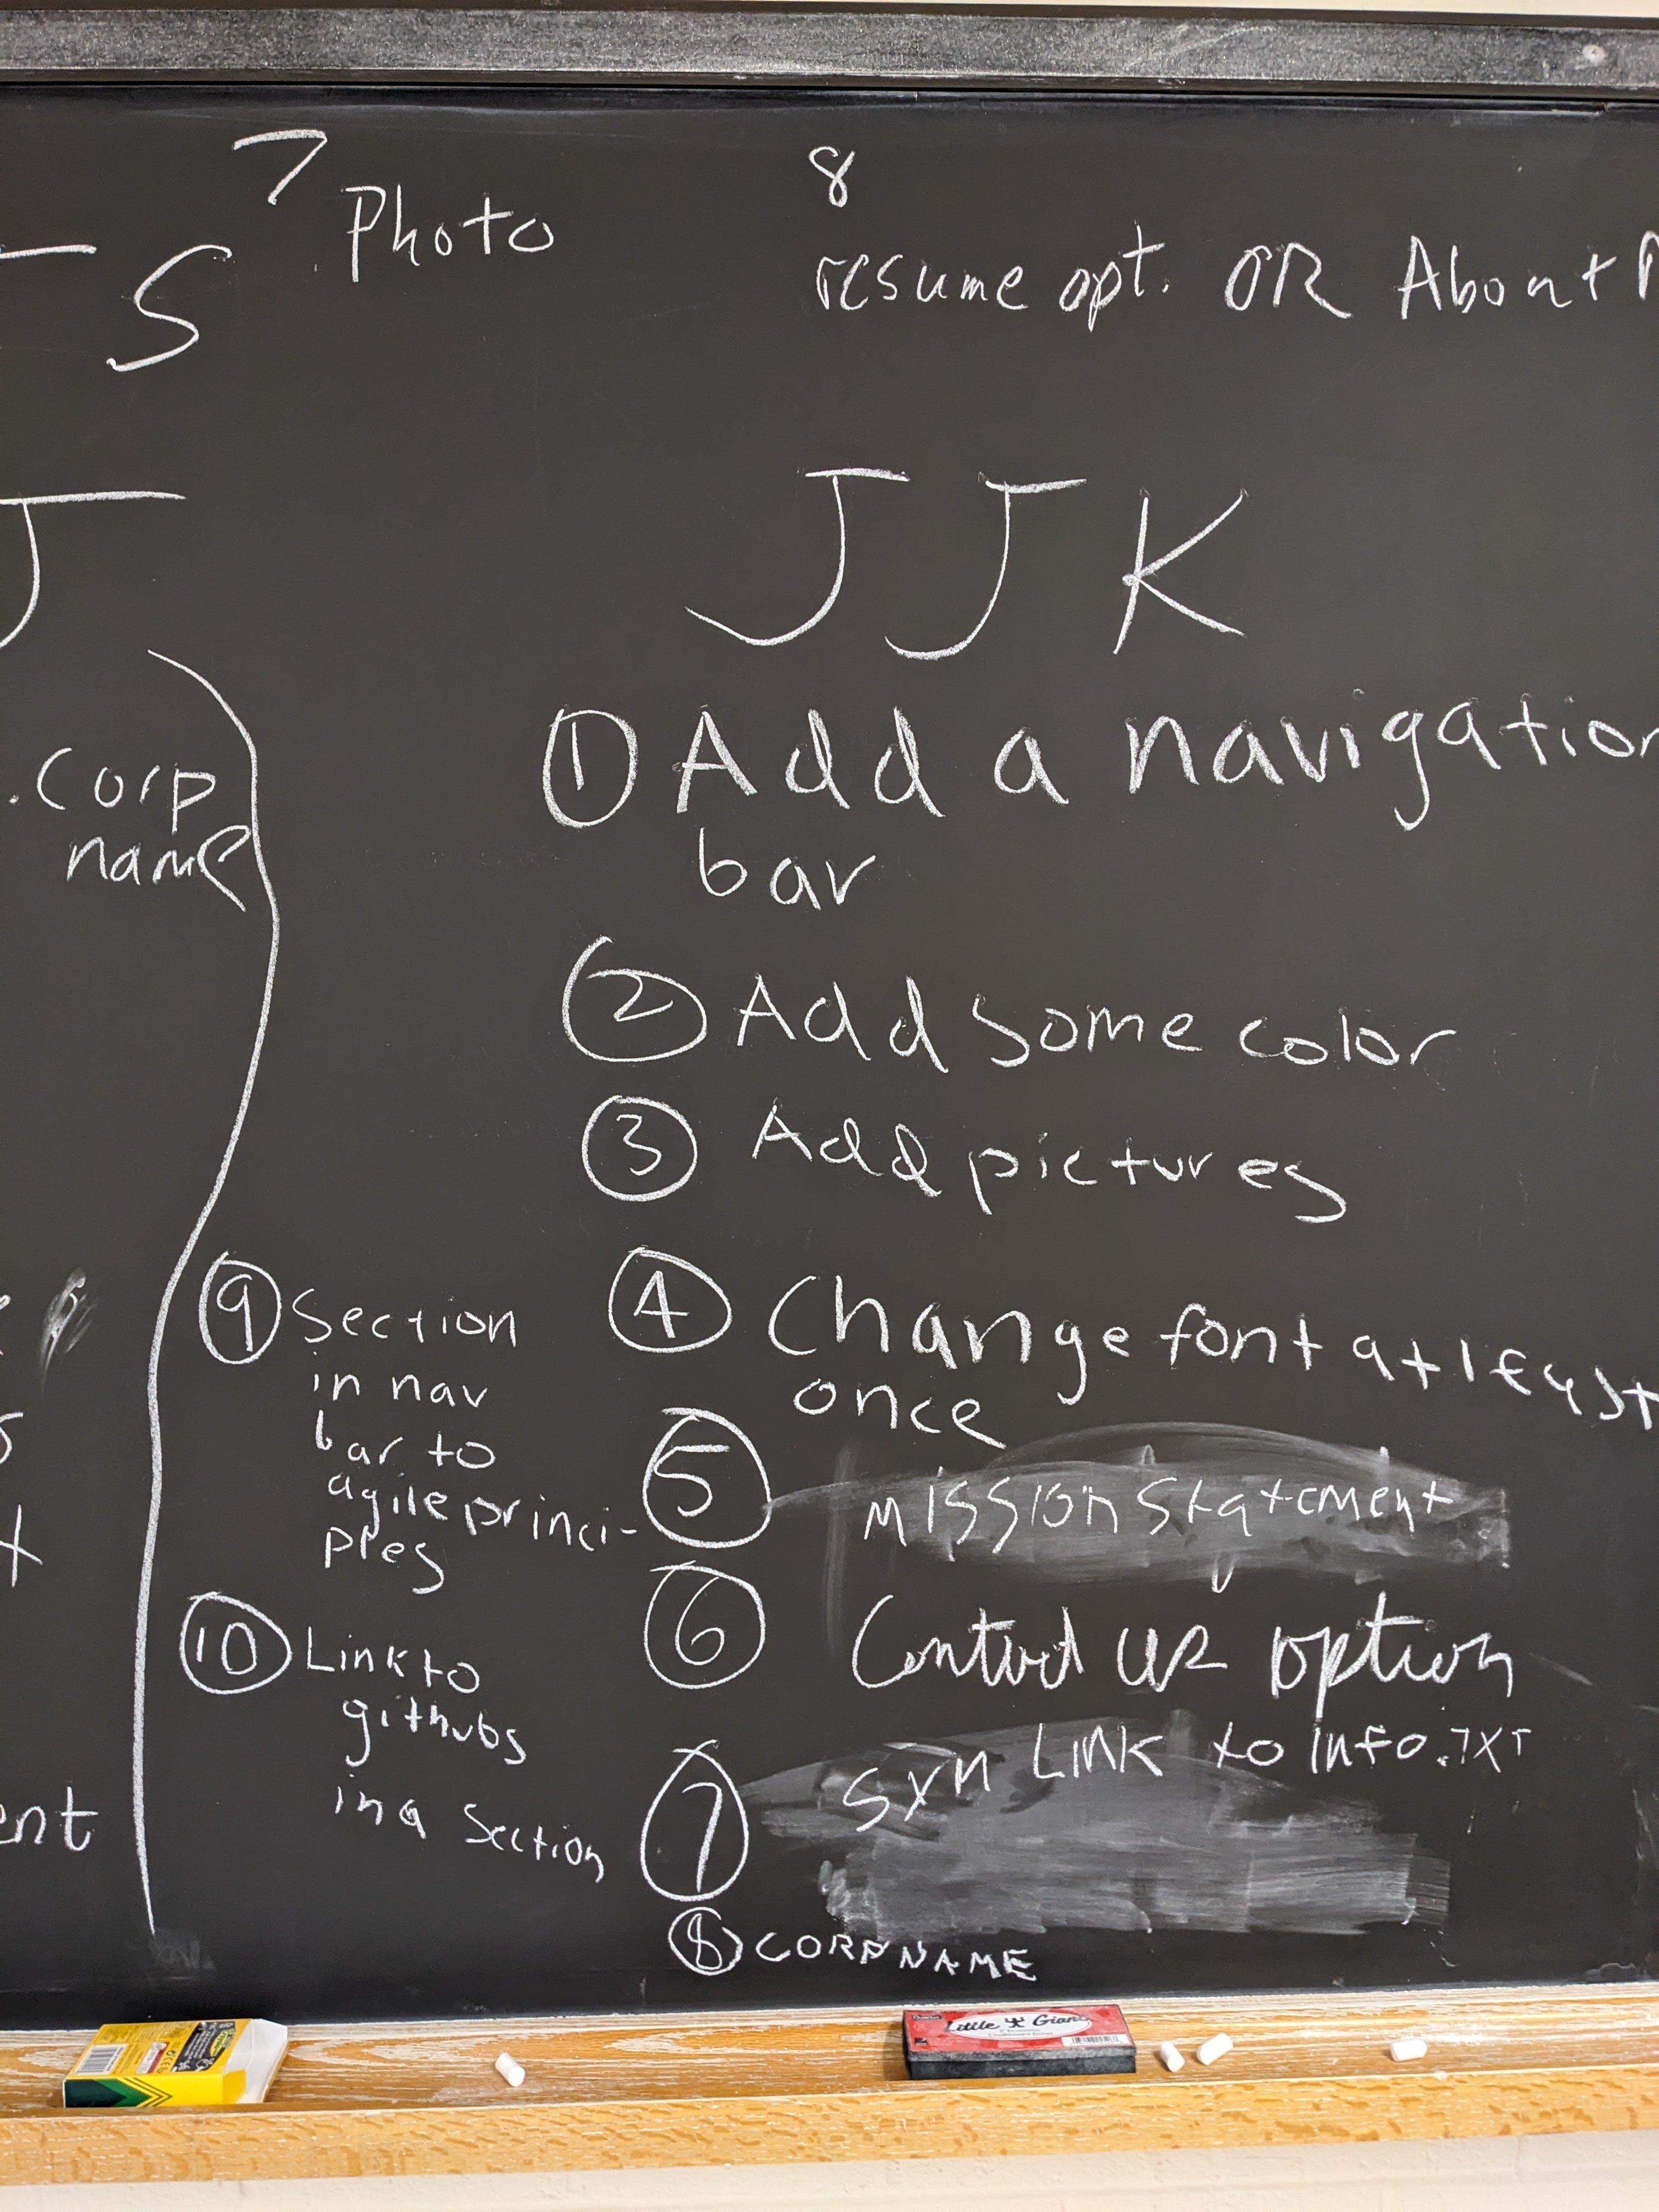 7 Photo
8
resume opt. OR About
S
J
JJK
① Add a navigation
bar
. corp
name
② Add some color
③ Add pictures
④ Change font at least
once
⑤ mission statement
⑥ Contact us option
⑦ sym Link to Info.TXT
⑧ CORPNAME
⑨ Section
in nav
bar to
agile princi-
ples
⑩ Link to
githubs
in a section
ent
Little Giant